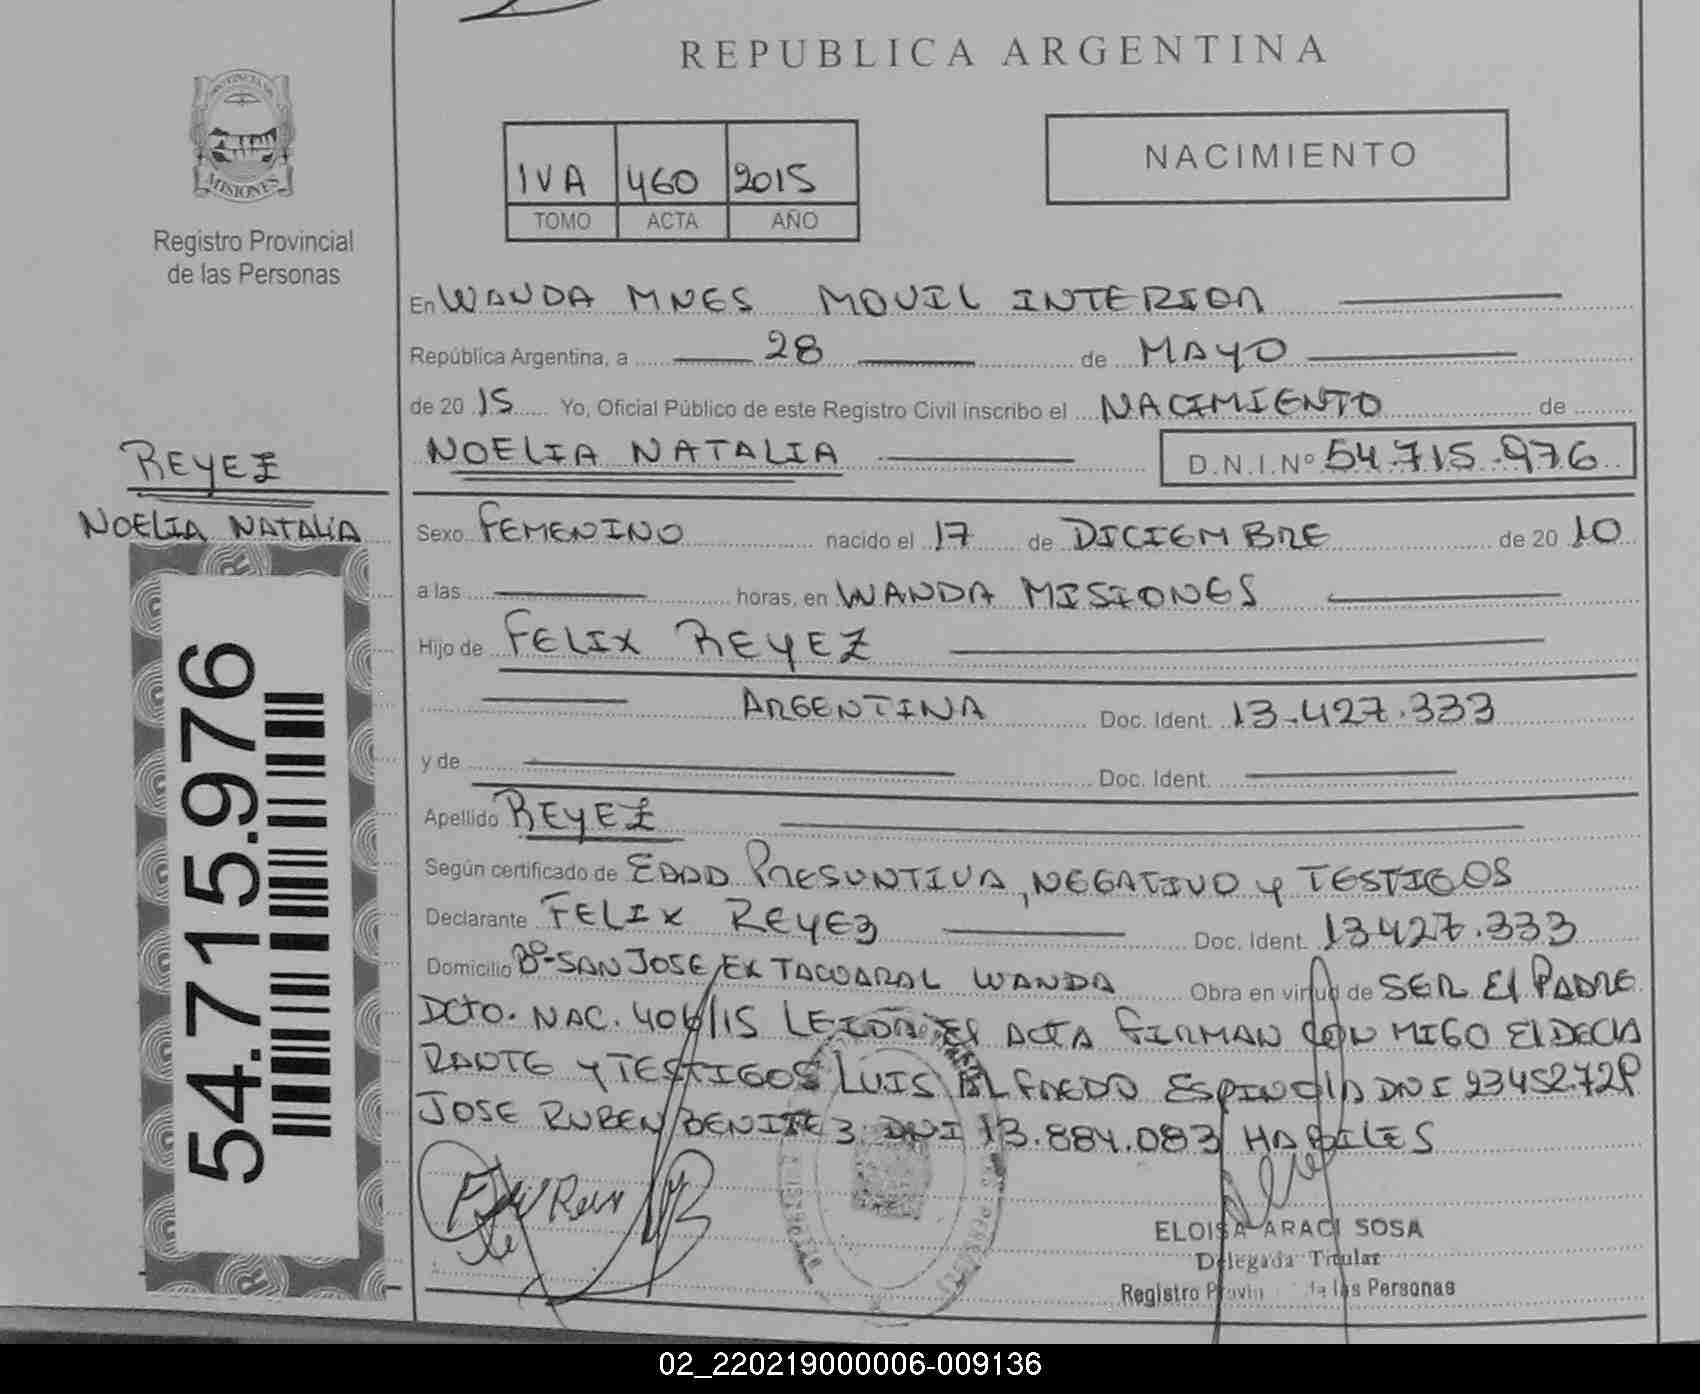 REPUBLICA ARGENTINA
PROVINCIA DE
MISIONES
Registro Provincial
de las Personas
IVA 460 2015
TOMO ACTA AÑO
NACIMIENTO
En WANDA MNES MOVIL INTERIOR
República Argentina, a 28 de MAYO
de 2015 Yo, Oficial Público de este Registro Civil inscribo el NACIMIENTO de
NOELIA NATALIA D.N.I.Nº 54.715.976
REYEZ
NOELIA NATALIA
54.715.976
Sexo FEMENINO nacido el 17 de DICIEMBRE de 2010
a las horas, en WANDA MISIONES
Hijo de FELIX REYEZ
ARGENTINA Doc. Ident. 13.427.333
y de Doc. Ident.
Apellido REYEZ
Según certificado de EDAD PRESUNTIVA, NEGATIVO y TESTIGOS
Declarante FELIX REYEZ Doc. Ident. 13427.333
Domicilio Bº-SAN JOSE, EX TACUARAL WANDA Obra en virtud de SER El PADRE
DCTO. NAC. 406/15 LEIDA El ACTA FIRMAN CON MIGO El DECLA
RANTE y TESTIGOS LUIS ALFREDO ESPINOLA DNI
JOSE RUBEN BENITEZ DNI 13.884.083 HABILES
ELOISA ARACI SOSA
Delegada Titular
Registro de las Personas
02_220219000006-009136